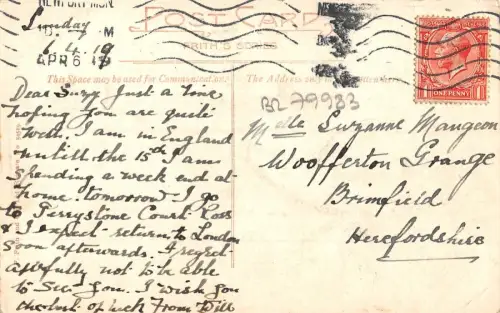 NEWPORT MON
POST CARD
FRITH'S SERIES
Sunday
6.4.19
APR 6 19
This Space may be used for Communication
The Address
written here
B2 79983
ONE PENNY
Dear Suzy Just a line
hoping you are quite
well. I am in England
untill the 15th I am
spending a week end at
home. tomorrow I go
to Perrystone Court Ross
& I expect return to London
soon afterwards. I regret
awfully not to be able
to see you. I wish you
the best of luck From Will
Melle Suzanne Maugeon
Woofferton Grange
Brimfield
Herefordshire